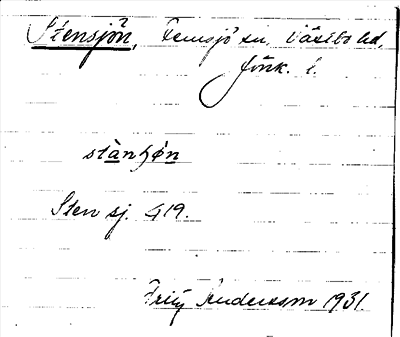 Stensjön, Femsjö sn, Västbo hd,
Jönk. l.
stànʃø̀n
Sten sj. G 19.
Fritz Andersson 1931